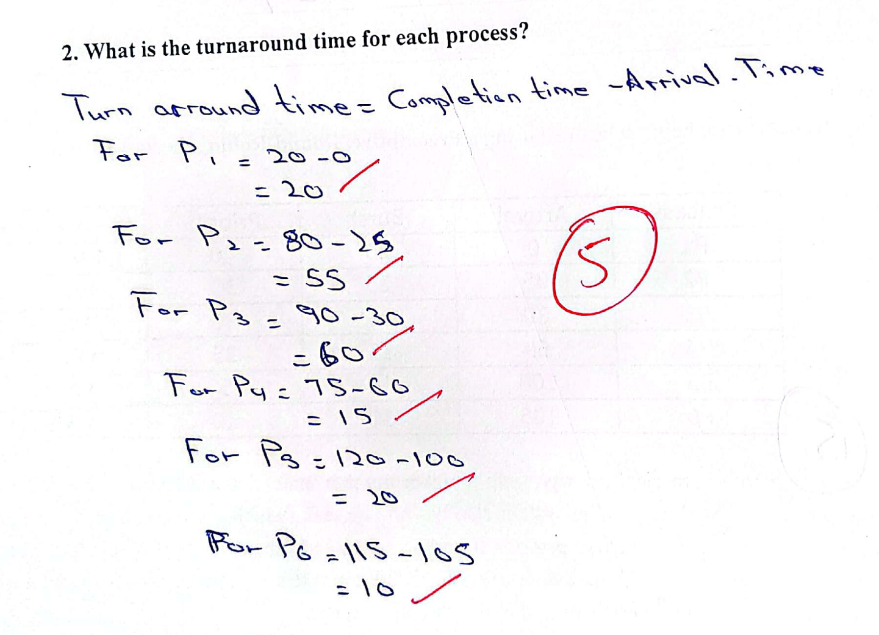 2. What is the turnaround time for each process?
Turn arround time = Completion time - Arrival Time
For P1 = 20 - 0
= 20
For P2 = 80 - 25
= 55
For P3 = 90 - 30
= 60
For P4 = 75 - 60
= 15
For P5 = 120 - 100
= 20
For P6 = 115 - 105
= 10
5